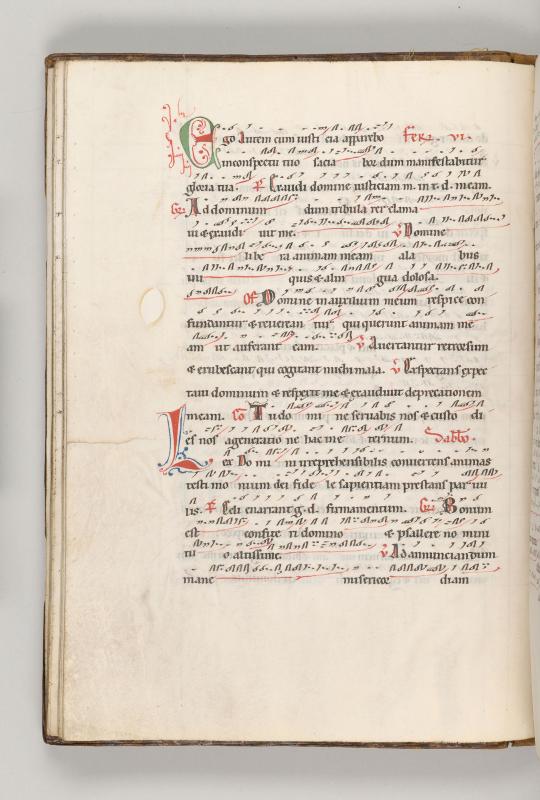 Ego autem cum iusti cia apparebo Feria. vi.
in conspectu tuo satia bor dum manifestabitur
gloria tua. Ps Exaudi domine iusticiam m. in t. d. meam.
Gr Ad dominum dum tribula rer clama
ui & exaudi uit me. v Domine
libe ra animam meam a la bus
ini quis & a lin gua dolosa.
Of Domine in auxilium meum respice con
fundantur & reuerean tur qui querunt animam me
am ut auferant eam. v Auertantur retrorsum
& erubescant qui cogitant michi mala. v Expectans expec
taui dominum & respexit me & exaudiuit deprecationem
meam. Co Tu do mi ne seruabis nos & custo di
es nos a generatio ne hac in e ternum. Sabbo.
Lex Do mi ni irreprehensibilis conuertens animas
testi mo nium dei fide le sapientiam prestans par uu
lis. Ps Celi enarrant g. d. firmamentum. Gr Bonum
est confite ri domino & psallere no mini
tu o altissime. v Ad annunciandum
mane misericor diam